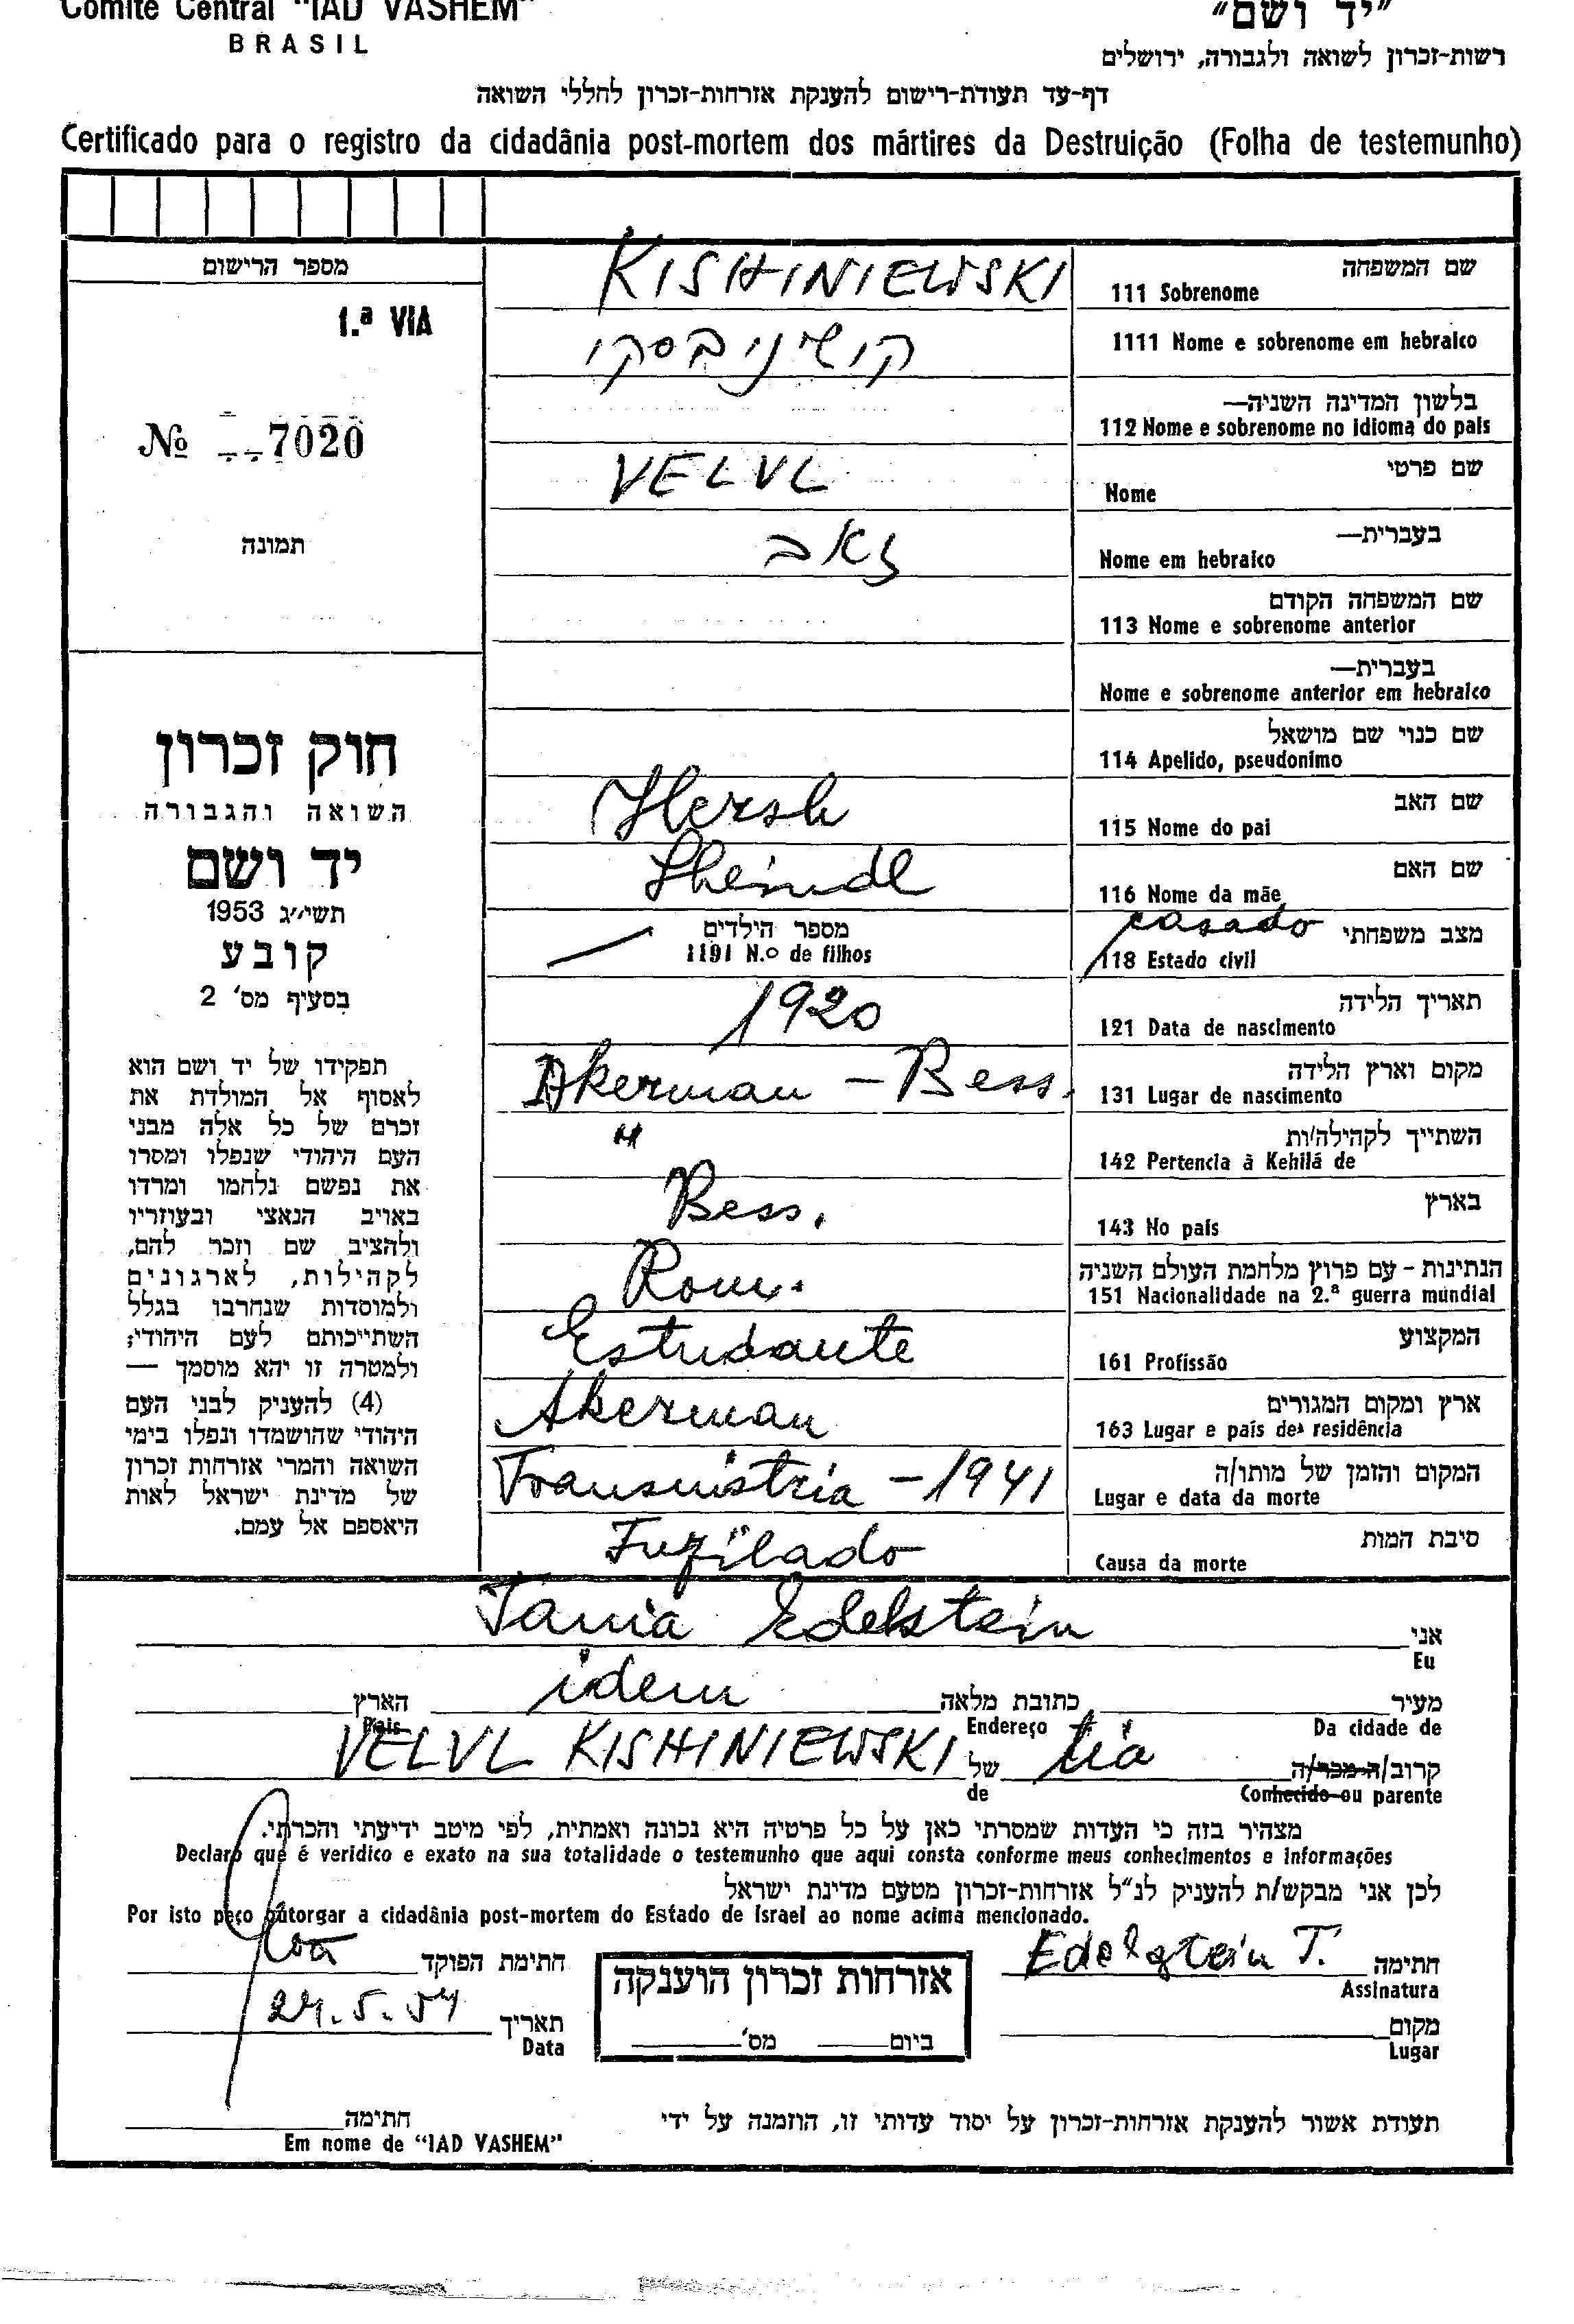 Comité Central "IAD VASHEM"
BRASIL
"יד ושם"
רשות-זכרון לשואה ולגבורה, ירושלים
דף-עד תעודת-רישום להענקת אזרחות-זכרון לחללי השואה
Certificado para o registro da cidadânia post-mortem dos mártires da Destruição (Folha de testemunho)
מספר הרישום
1.ª VIA
№ 7020
תמונה
חוק זכרון
השואה והגבורה
יד ושם
תשי"ג 1953
קובע
בסעיף מס' 2
תפקידו של יד ושם הוא
לאסוף אל המולדת את
זכרם של כל אלה מבני
העם היהודי שנפלו ומסרו
את נפשם נלחמו ומרדו
באויב הנאצי ובעוזריו
ולהציב שם וזכר להם,
לקהילות, לארגונים
ולמוסדות שנחרבו בגלל
השתייכותם לעם היהודי;
ולמטרה זו יהא מוסמך —
(4) להעניק לבני העם
היהודי שהושמדו ונפלו בימי
השואה והמרי אזרחות זכרון
של מדינת ישראל לאות
היאספם אל עמם.
שם המשפחה
111 Sobrenome KISHINIEWSKI
1111 Nome e sobrenome em hebraico קושיניבסקי
בלשון המדינה השניה—
112 Nome e sobrenome no idioma do pais
שם פרטי
Nome VELVL
בעברית—
Nome em hebraico זאב
שם המשפחה הקודם
113 Nome e sobrenome anterior
בעברית—
Nome e sobrenome anterior em hebraico
שם כנוי שם מושאל
114 Apelido, pseudonimo
שם האב
115 Nome do pai Hersh
שם האם
116 Nome da mãe Sheindl
מצב משפחתי casado
118 Estado civil
מספר הילדים
1191 N.º de filhos —
תאריך הלידה
121 Data de nascimento 1920
מקום וארץ הלידה
131 Lugar de nascimento Akerman - Bess.
השתייך לקהילה/ות
142 Pertencia à Kehilá de "
בארץ
143 No país Bess.
הנתינות - עם פרוץ מלחמת העולם השניה
151 Nacionalidade na 2.ª guerra mundial Rom.
המקצוע
161 Profissão Estudante
ארץ ומקום המגורים
163 Lugar e país de residência Akerman
המקום והזמן של מותו/ה
Lugar e data da morte Transnistria - 1941
סיבת המות
Causa da morte Fuzilado
אני Tania Edelstein
Eu
מעיר כתובת מלאה idem הארץ
Da cidade de Endereço Pais
קרוב/ה מכר/ה tia של VELVL KISHINIEWSKI
Conhecido ou parente de
מצהיר בזה כי העדות שמסרתי כאן על כל פרטיה היא נכונה ואמתית, לפי מיטב ידיעתי והכרתי.
Declaro que é veridico e exato na sua totalidade o testemunho que aqui consta conforme meus conhecimentos e informações
לכן אני מבקש/ת להעניק לנ"ל אזרחות-זכרון מטעם מדינת ישראל
Por isto peço outorgar a cidadânia post-mortem do Estado de Israel ao nome acima mencionado.
חתימה Edelstein T.
Assinatura
חתימת הפוקד
אזרחות זכרון הוענקה
ביום מס'
מקום
Lugar
תאריך 24.5.54
Data
תעודת אשור להענקת אזרחות-זכרון על יסוד עדותי זו, הוזמנה על ידי
חתימה
Em nome de "IAD VASHEM"